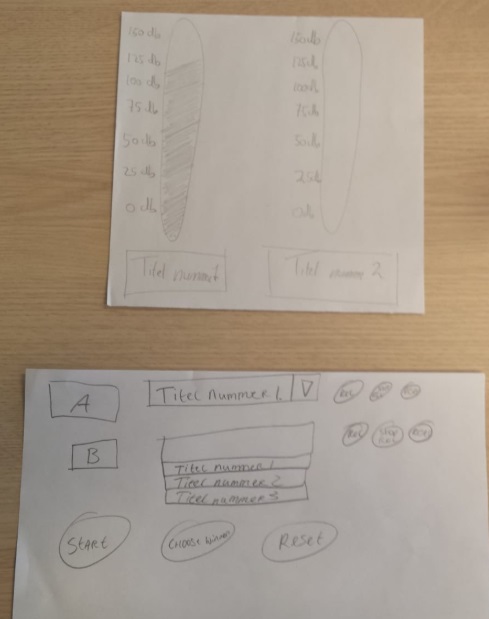 150 db
125 db
100 db
75 db
50 db
25 db
0 db
150 db
125 db
100 db
75 db
50 db
25 db
0 db
Titel nummer 1
Titel nummer 2
A
Titel nummer 1
B
Titel nummer 1
Titel nummer 2
Titel nummer 3
START
CHOOSE winner
Reset